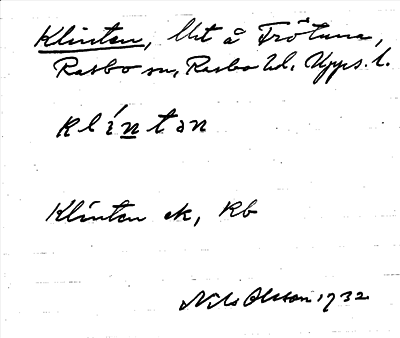 Klinten, Urt å Frötuna,
Rasbo sn, Rasbo hd, Upps. l.
klíntən
Klinten ek, Rb
Nils Olsson 1932